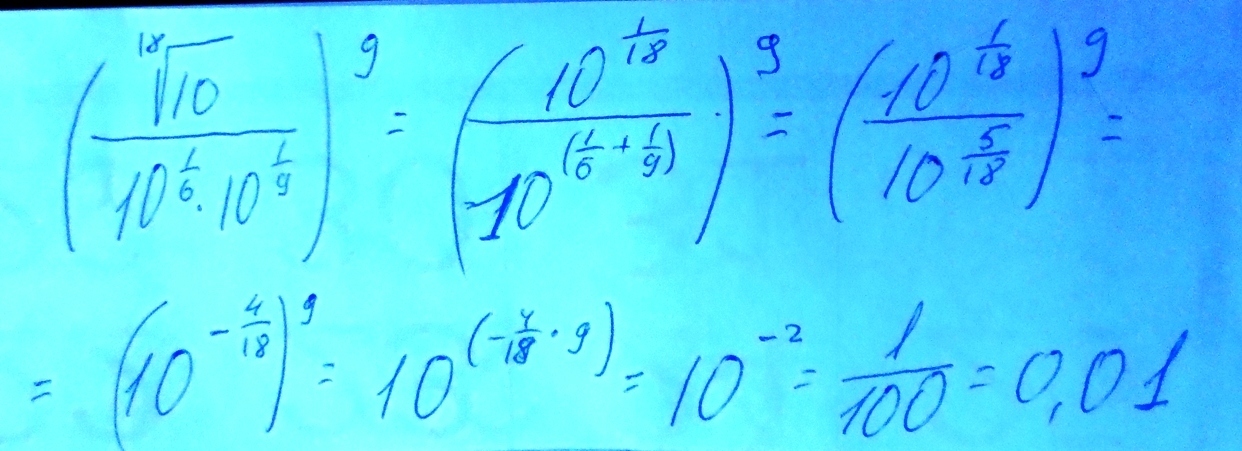 (¹⁸√10 / (10^(1/6) · 10^(1/9)))^9 = (10^(1/18) / 10^(1/6 + 1/9))^9 = (10^(1/18) / 10^(5/18))^9 =
= (10^(-4/18))^9 = 10^(-4/18 · 9) = 10^(-2) = 1/100 = 0,01